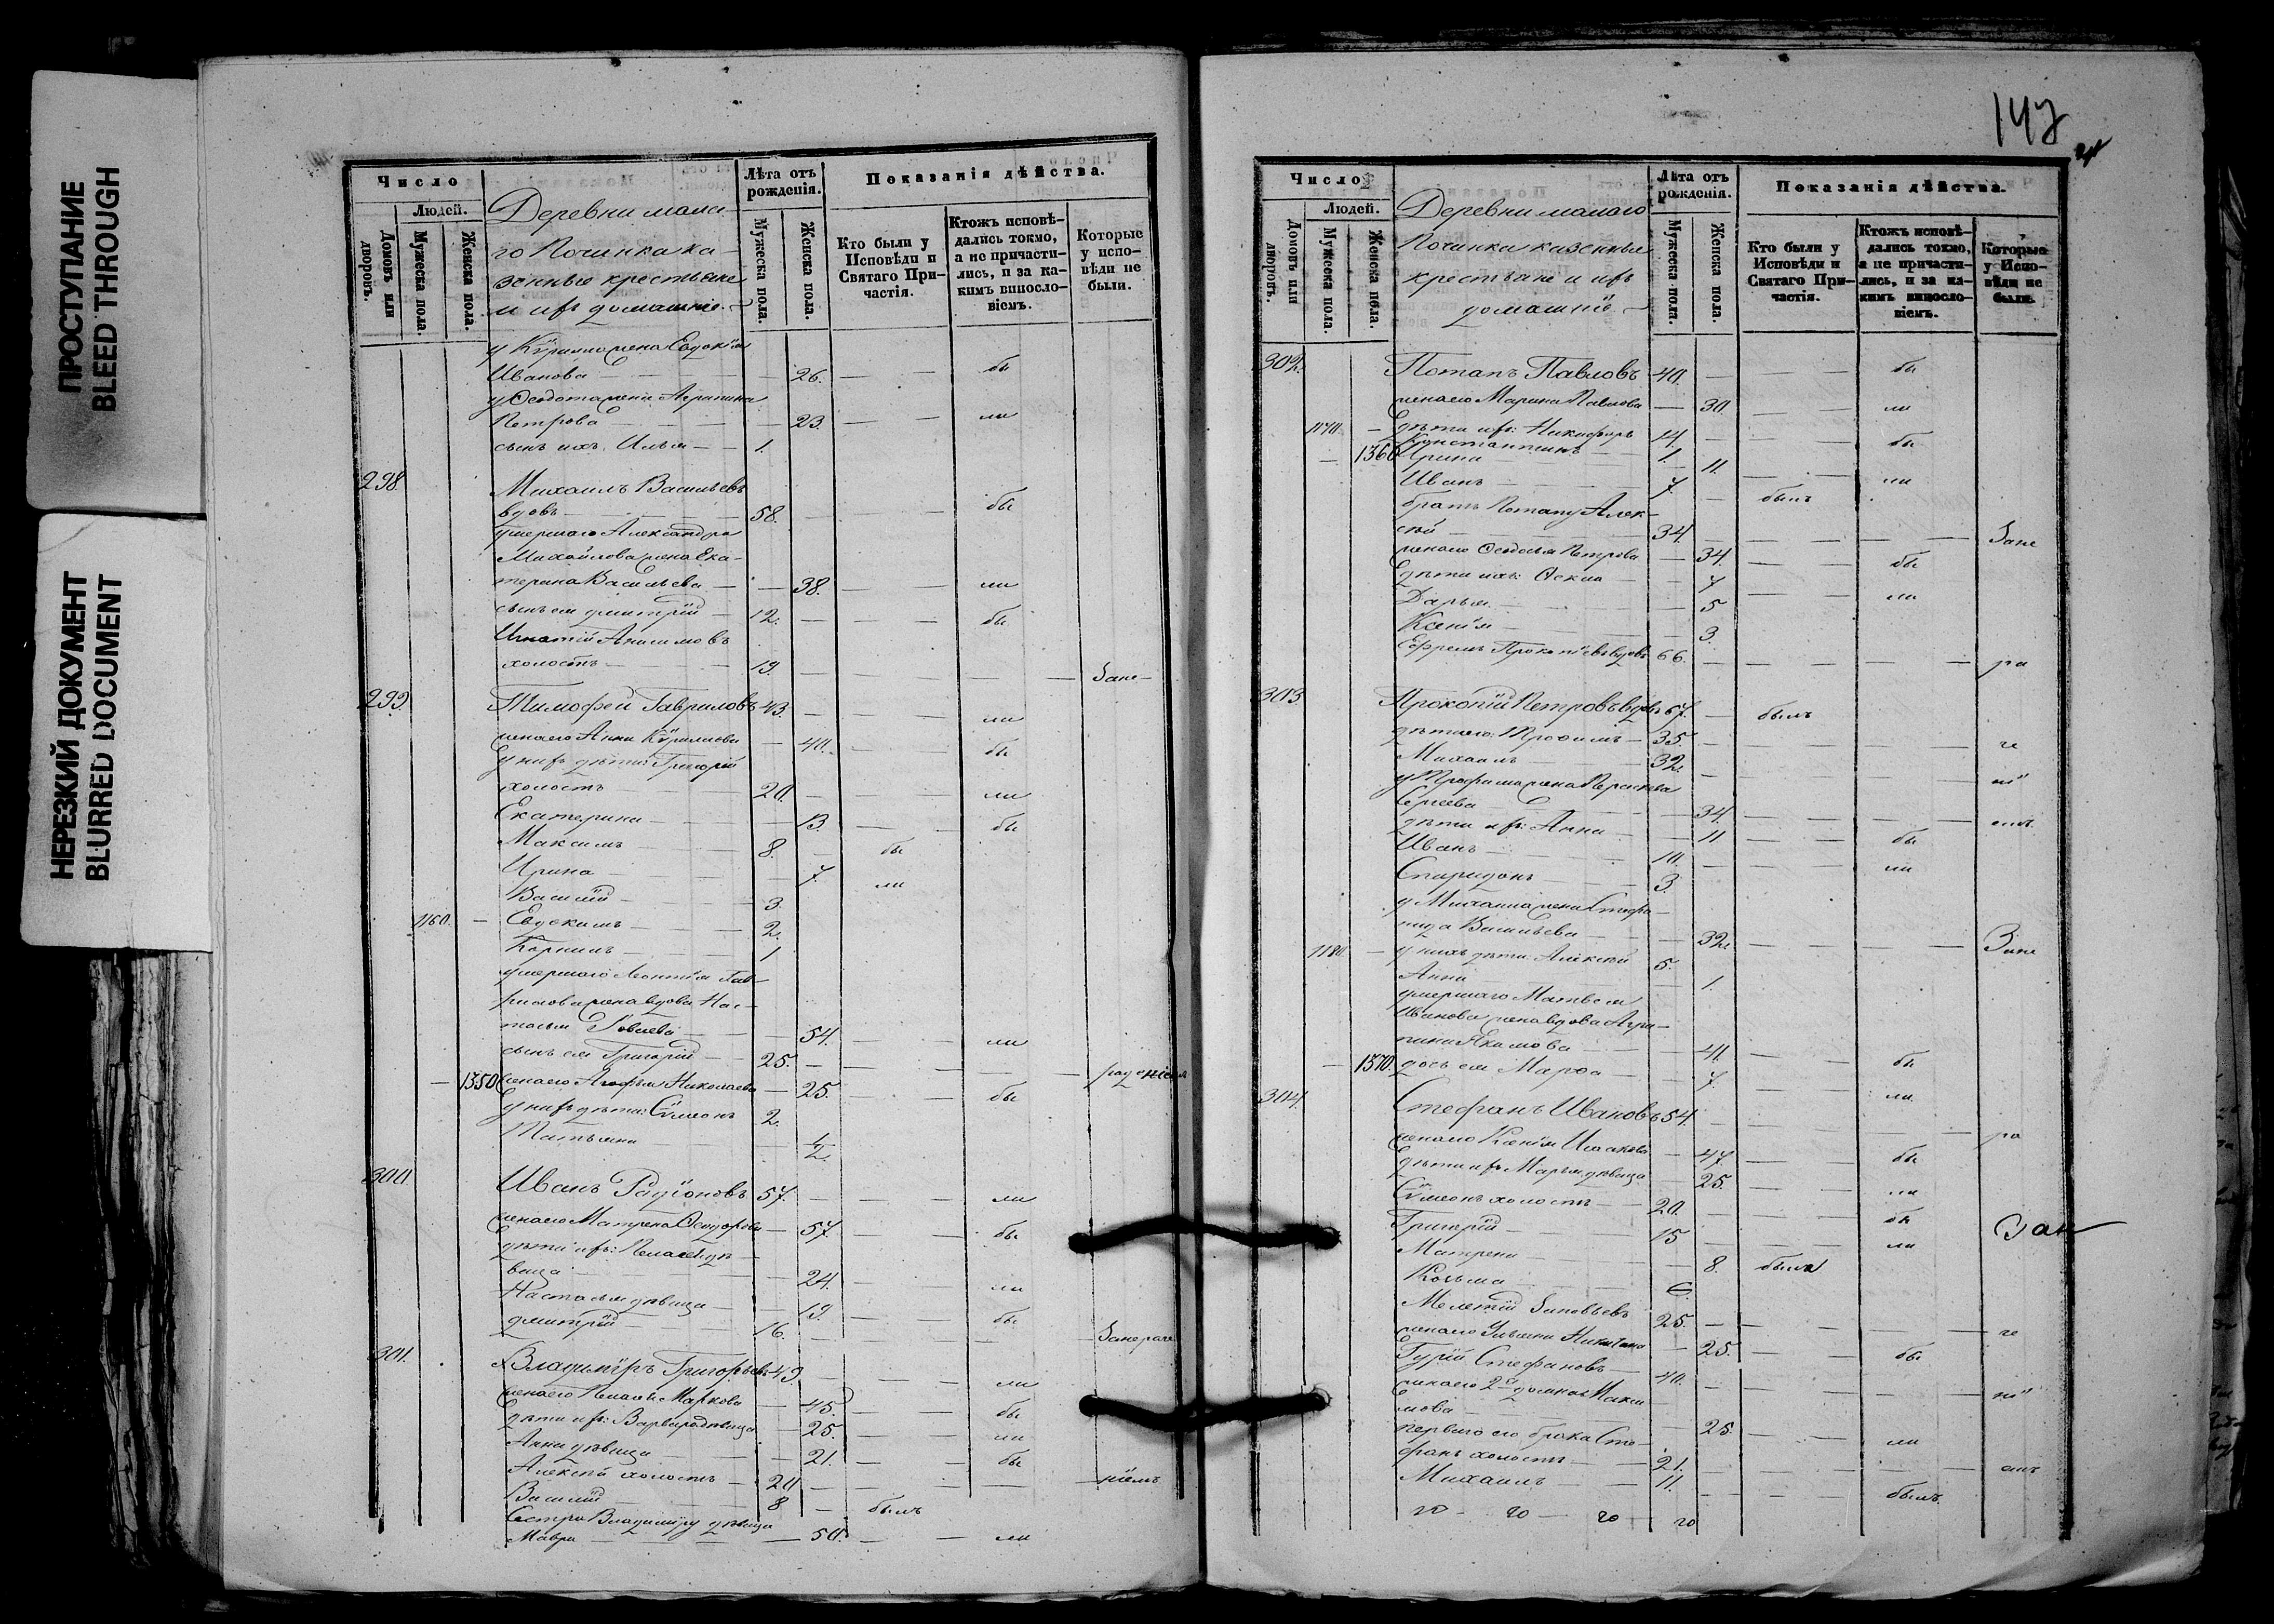 ПРОСТУПАНИЕ
BLEED THROUGH
НЕРЕЗКИЙ ДОКУМЕНТ
BLURRED DOCUMENT
Число
Людей.
Домовъ или дворовъ.
Мужеска пола.
Женска пола.
Деревни мала-
го Починка ка-
зенные крестьяне
и ихъ домашніе.
Лѣта отъ рожденія.
Мужеска пола.
Женска пола.
Показанія дѣйства.
Кто были у Исповѣди и Святаго Причастія.
Ктожъ исповѣ-
дались токмо,
а не причасти-
лись, и за ка-
кимъ винosло-
віемъ.
Которые
у испо-
вѣди не
были.
у Кѵрилла жена Евдокія
Иванова — 26. — бы
у Ѳеодота жена Агрипина
Петрова — 23. — ли
сынъ ихъ Илья — 1.
298. Михаилъ Васильевъ
вдовъ — 58. — бы
умершаго Александра
Михайлова жена Ека-
терина Васильева — 38. — ли
сынъ ея Дмитрій — 12. — бы
Игнатій Анисимовъ
холостъ — 19. — Зане-
299. Тимофей Гавриловъ 43. — ли
жена его Анна Кѵриллова — 40. — бы
у нихъ дѣти: Григорій
холостъ — 20. — ли
Екатерина — 13. — бы
Максимъ — 8. — бы
Ирина — 7. — ли
Василій — 3.
1160. — Евдокимъ — 2.
Корнилъ — 1
умершаго Леонтія Гав-
рилова жена вдова Нас-
тасья — 54. — ли
сынъ ея Григорій — 25. — раденіемъ
— 1350 жена его Агафья Николаева — 25. — бы
у нихъ дѣти: Сѵмеонъ 2.
Татьяна — 1/2.
300. Иванъ Радіоновъ 57. — ли
жена его Матрена Ѳеодорова — 57. — бы
дѣти ихъ: Пелагея дѣ-
вица — 24. — ли
Настасья дѣвица — 19. — бы
Дмитрій — 16. — Занераде
301. Владиміръ Григорьевъ 49. — ли
жена его Пелагѣя Маркова — 45. — бы
дѣти ихъ: Варвара дѣвица — 25. — ли
Анна дѣвица — 21. — бы
Алексѣй холостъ — 20 — ніемъ
Василій — 8 — былъ
Сестра Владиміру дѣвица
Мавра — 50. — ли
147
Число
Людей.
Домовъ или дворовъ.
Мужеска пола.
Женска пола.
Деревни малаго
Починка казенные
крестьяне и ихъ
домашніе.
Лѣта отъ рожденія.
Мужеска пола.
Женска пола.
Показанія дѣйства.
Кто были у Исповѣди и Святаго Причастія.
Ктожъ исповѣ-
дались токмо,
а не причасти-
лись, и за ка-
кимъ винosло-
віемъ.
Которые
у Испо-
вѣди не
были.
302. Потапъ Павловъ 40. — бы
жена его Марина Павлова — 30. — ли
1170. — дѣти ихъ: Никифоръ 14. — бы
Константинъ — 1.
— 1360 Ирина — 11. — ли
Иванъ — 7. — былъ
братъ Потапу Алек-
сѣй — 34. — Зане
жена его Ѳеодосья Петрова — 34. — бы
дѣти ихъ: Ѳекла — 7 — ли
Дарья — 5
Ксенія — 3.
Ефремъ Прокопіевъ вдовъ 66. — ра
303. Прокопій Петровъ вдовъ 67. — былъ
дѣти его: Трофимъ — 35. — де
Михаилъ — 32. — ні
у Трофима жена Параскева
Сергеева — 34. — емъ.
дѣти ихъ: Анна — 11 — бы
Иванъ — 10. — ли
Спиридонъ — 3.
у Михаила жена Стефа-
нида Васильева — 32. — Зане
1180. — у нихъ дѣти: Алексѣй 5.
Анна — 1.
умершаго Матвея
Иванова жена вдова Агри-
пина Якимова — 41. — бы
— 1370. дочь ея Марѳа — 7. — ли
304. Стефанъ Ивановъ 54. — ра
жена его Ксенія Исаакова — 47. — бы
дѣти ихъ Марья дѣвица — 25. — ли
Сѵмеонъ холостъ — 20. — бы
Григорій — 15 — ли Зан
Матрена — 8. была
Козьма — 6.
Мелетій Зиновьевъ 25. — де
жена его Ульяна Никитина — 25. — бы
Гурій Стефановъ — 40. — ні
жена его 2я Домна Макси-
мова — 25. — ли
перваго его брака Сте-
фанъ холостъ — 21. — емъ
Михаилъ — 11. — былъ.